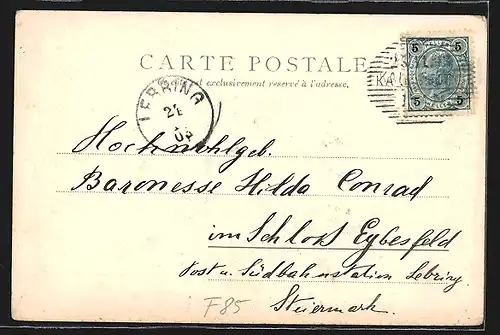 CARTE POSTALE
exclusivement reservé à l'adresse.
5 5
5 5
LEBRING
Hochwohlgeb.
Baronesse Hilda Conrad
im Schloß Eybesfeld
Post u. Südbahnstation Lebring
Steiermark.
F85